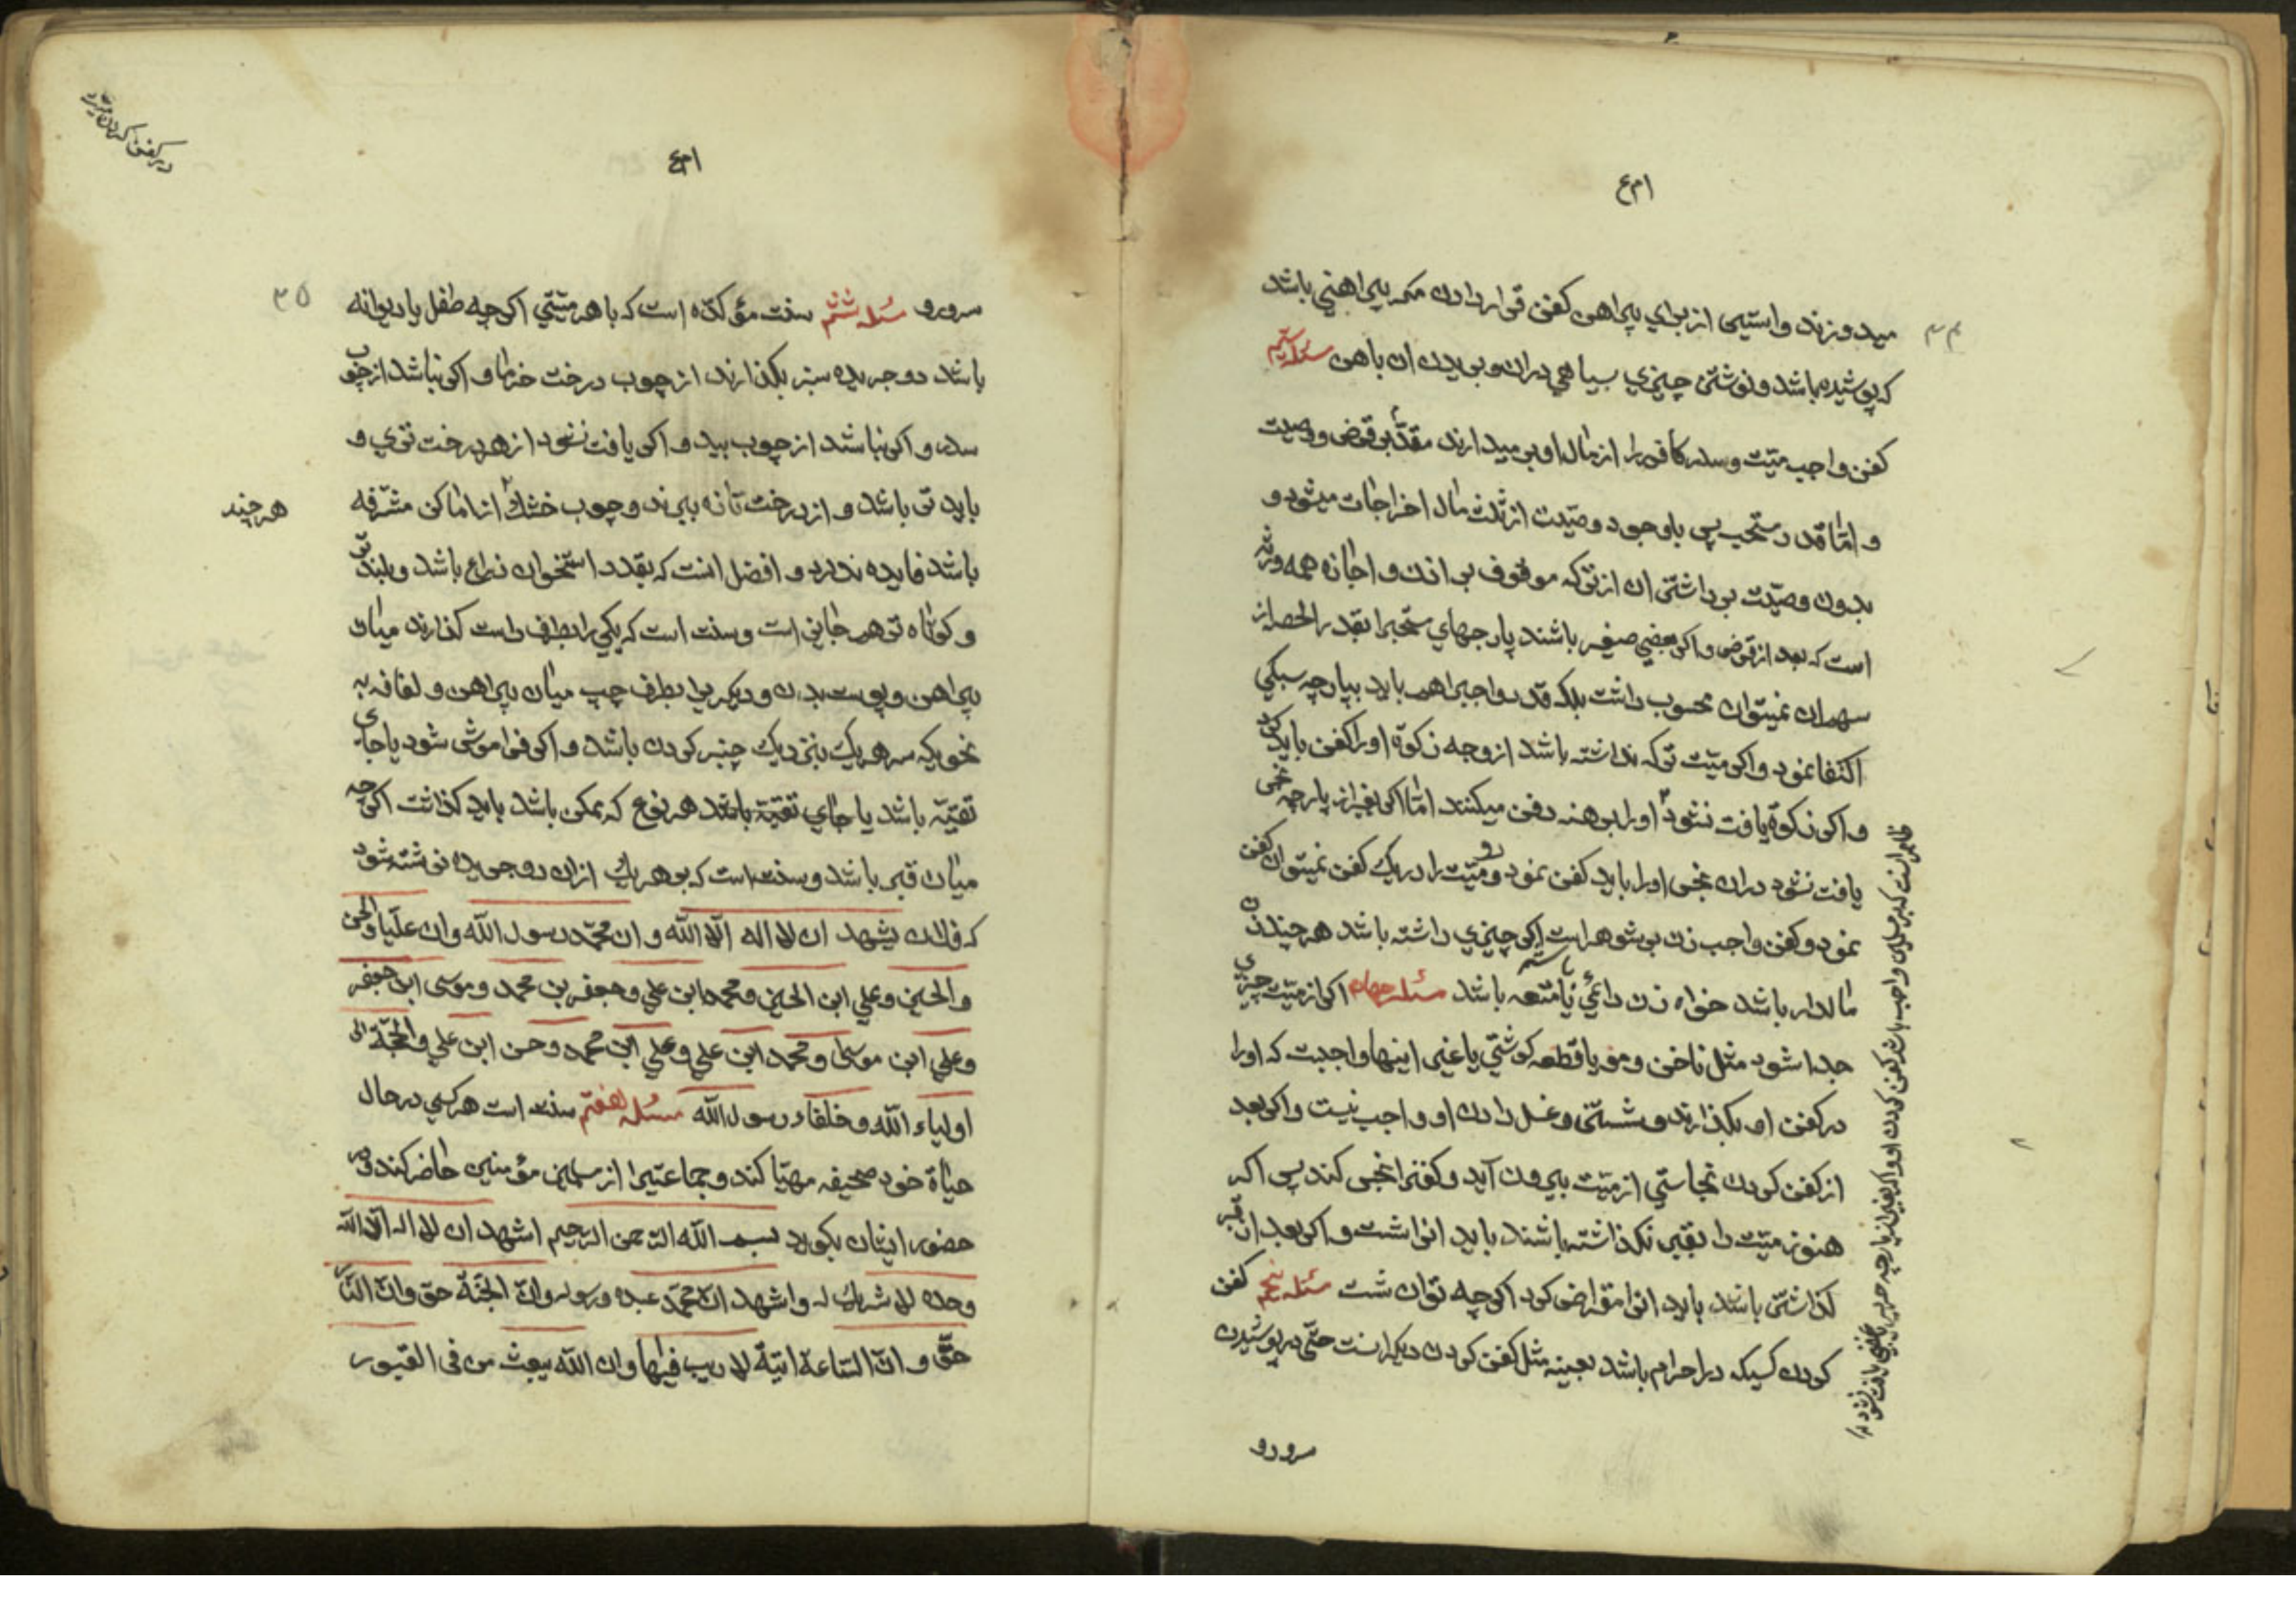 ا م ع
۳۴
میدوزند و استین از برای پیراهن کفن قرار دادن مکر پیراهنی باشد
که پوشیده باشد و نوشتن چیزی بسیاهی دران و بریدن ان باهن مسئله سیم
کفن واجب میّت و سدر کافور را از مال او بر میدارند مقدّم بر قرض و وصیت
و امّا قدر مستحب پس باوجود وصیّت از ثلث مال اخراجات میشود و
بدون وصیّت برداشتن ان از ترکه موقوف بر اذن و اجازه همه ورثه
است که بعد از قرض و اکر بعضی صغیر باشند پارجهای مستحبرا بقدر الحصه از
سهم ان نمیتوان محسوب داشت بلکه قدر واجبرا هم باید بپارچه سبکی
اکتفا نمود و اکر میّت ترکه نداشته باشد از وجه زکوة اورا کفن باید کرد
و اکر زکوة یافت نشود اورا برهنه دفن میکنند امّا اکر بغیر از پارچه نجس
یافت نشود دران نجس اورا باید کفن نمود و دو میّت را در یک کفن نمیتوان کفن
نمود و کفن واجب زن بر شوهر است اکر چیزی داشته باشد هرچند زن
مالدار باشد خواه زن دائمی یا متعه باشد مسئله چهارم اکر از میّت چیزی
جدا شود مثل ناخن و مو یا قطعه کوشتی یا غیر اینها واجبت که اورا
در کفن او بکذارند و شستن و غسل دادن او واجب نیست و اکر بعد
از کفن کردن نجاستی از میّت بیرون آید و کفنرا نجس کند پس اکر
هنوز میّت را بقبر نکذاشته باشند باید انرا شست و اکر بعد از بقبر
کذاشتن باشد باید انرا مقراض کرد اکرچه توان شست مسئله پنجم کفن
کردن کسیکه در احرام باشد بعینه مثل کفن کردن دیکرانست حتّی در پوشیدن
سر و رو
ظاهر انست که بر مسلمین واجب باشد کفن کردن او و اکر بغیر از پارچه حریر یافت نشود
در کفن کردن میّت
ا م ع
۳۵
سر و رو مسئله ششم سنت مؤکده است که با هر میّتی اکرچه طفل یا دیوانه
باشد دو جریده سبز بکذارند از چوب درخت خرما و اکر نباشد از چوب
سدر و اکر نباشد از چوب بید و اکر یافت نشود از هر درخت تری و
باید تر باشد و از درخت تازه ببرند و چوب خشک از اماکن مشرّفه
هر چند
باشد فایده ندارد و افضل انست که بقدر استخوان ذراع باشد و بلندتر
و کوتاه تر هم جایز است و سنت است که یکی را بطرف راست کذارند میان
پیراهن و پوست بدن و دیکری را بطرف چپ میان پیراهن و لفافه به
نحویکه سر هر یک بنزدیک چنبر کردن باشد و اکر فراموش شود یا جای
تقیّه باشد یا جای تقیّة باشد هر نوع که ممکن باشد باید کذاشت اکرچه
میان قبر باشد و سنت است که بر هر یک ازان دو جریده نوشته شود
که فلان یشهد ان لا اله الّا اللّه و ان محمّد رسول اللّه و ان علیّا و الحسن
و الحسین و علی ابن الحسین و محمد ابن علی و جعفر بن محمد و موسی ابن جعفر
و علی ابن موسی و محمد ابن علی و علی ابن محمد و حسن ابن علی و الحجّة
اولیاء اللّه و خلفاء رسول اللّه مسئله هفتم سنت است هر کسی در حال
حیاة خود صحیفه مهیّا کند و جماعتیرا از مسلمین مؤمنین حاضر کند و در
حضور ایشان بکوید بسم اللّه الرّحمن الرّحیم اشهد ان لا اله الّا اللّه
وحده لا شریک له و اشهد انّ محمّد عبده و رسوله و انّ الجنّة حق و انّ النّار
حقّ و انّ السّاعة اتیة لا ریب فیها و ان اللّه یبعث من فی القبور